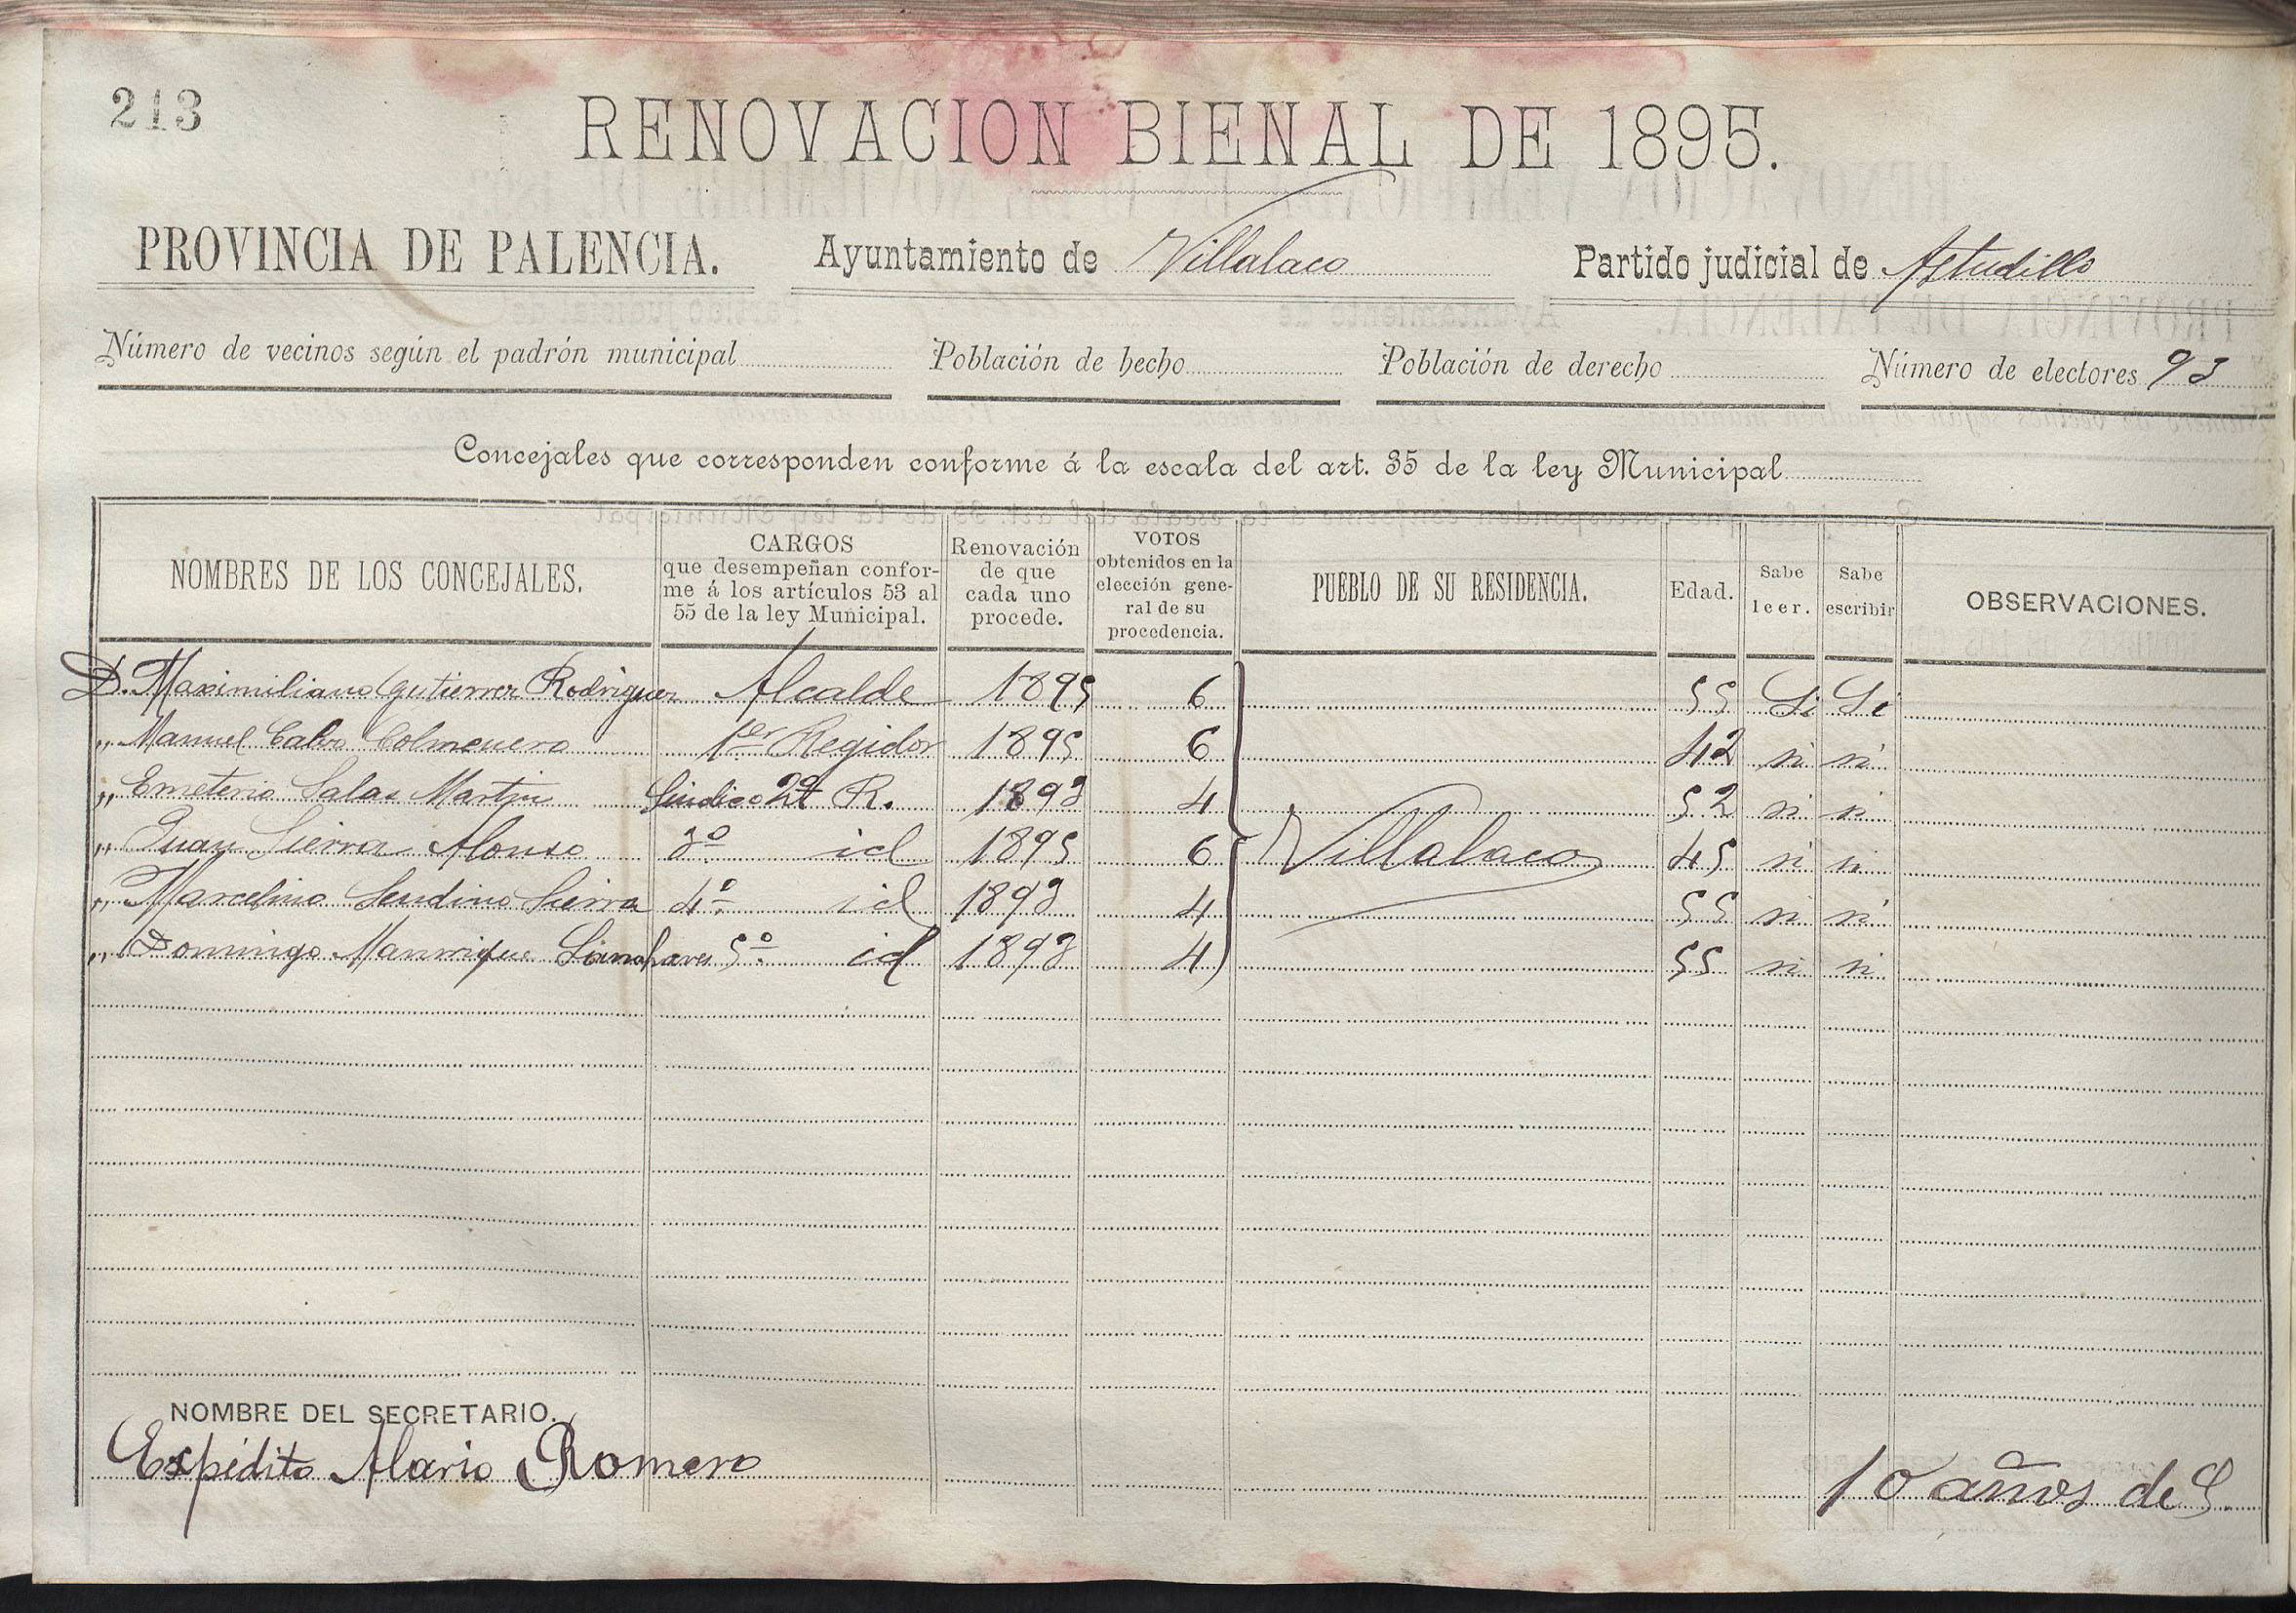 213
RENOVACION BIENAL DE 1895.
PROVINCIA DE PALENCIA. Ayuntamiento de Villalaco Partido judicial de Astudillo
Número de vecinos según el padrón municipal Población de hecho Población de derecho Número de electores 93
Concejales que corresponden conforme á la escala del art. 35 de la ley Municipal
NOMBRES DE LOS CONCEJALES. CARGOS que desempeñan confor-me á los artículos 53 al 55 de la ley Municipal. Renovación de que cada uno procede. VOTOS obtenidos en la elección gene-ral de su procedencia. PUEBLO DE SU RESIDENCIA. Edad. Sabe leer. Sabe escribir OBSERVACIONES.
D. Maximiliano Gutierrez Rodriguez Alcalde 1895 6 55 Si Si
" Manuel Calvo Colmenero 1er Regidor 1895 6 42 si si
" Emeterio Salas Martin Sindico 2º R. 1893 4 52 si si
" Juan Sierra Alonso 3º id 1895 6 Villalaco 45 si si
" Marcelino Sendino Sierra 4º id 1893 4 55 si si
" Domingo Manrique 5º id 1893 4 55 si si
NOMBRE DEL SECRETARIO.
Expédito Alario Romero 10 años de S.